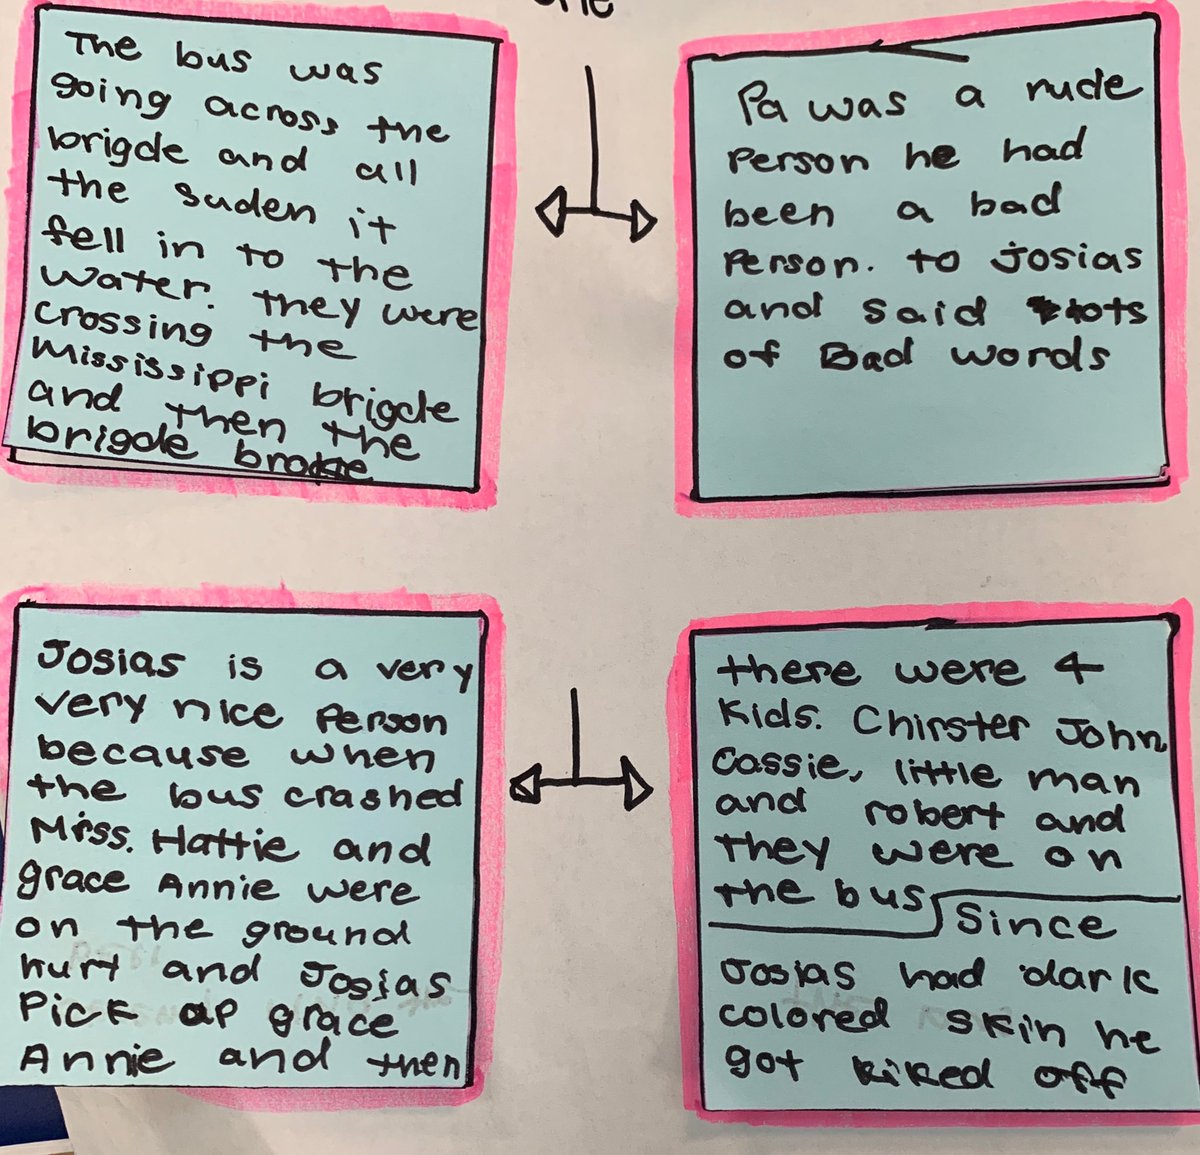 The bus was
going across the
brigde and all
the suden it
fell in to the
water. they were
crossing the
Mississippi brigde
and then the
brigde broke
Pa was a rude
Person he had
been a bad
Person. to josias
and said lots
of Bad words
Josias is a very
very nice Person
because when
the bus crashed
Miss. Hattie and
grace Annie were
on the ground
hurt and Josias
Pick up grace
Annie and then
there were 4
kids. Chirster John
Cassie, little man
and robert and
they were on
the bus
Since
Josias had dark
colored skin he
got kiked off